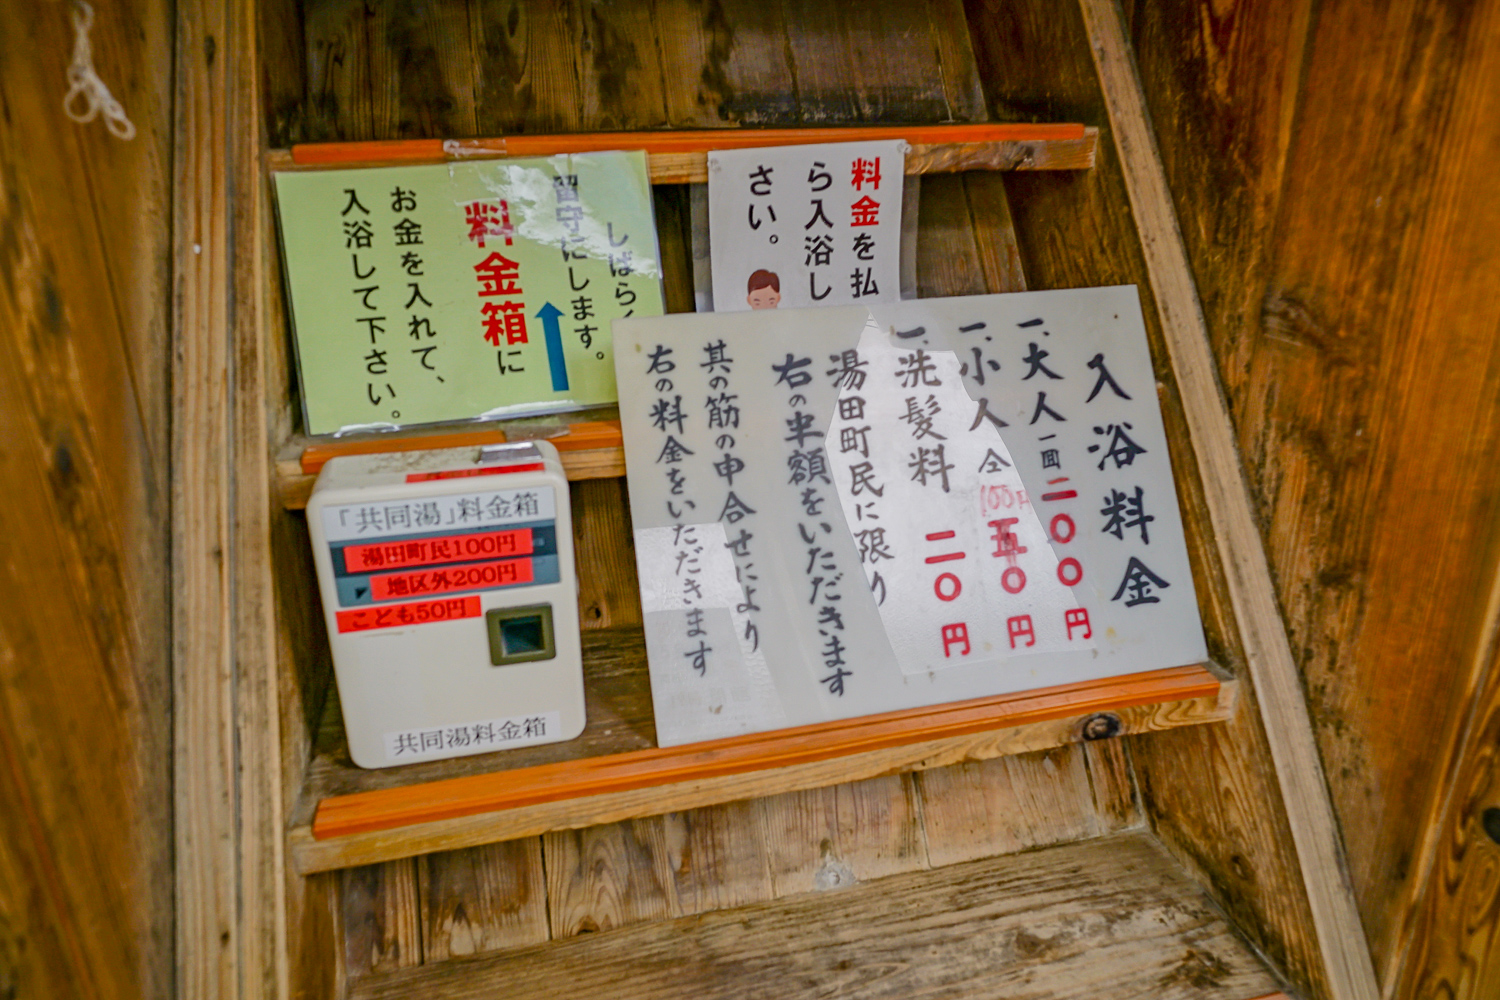 しばらく
留守にします。
料金箱に
お金を入れて、
入浴して下さい。
料金を払
ら入浴し
さい。
入浴料金
一、大人 一回 二〇〇円
一、小人 仝 100円 五〇円
一、洗髪料 二〇円
湯田町民に限り
右の半額をいただきます
其の筋の申合せにより
右の料金をいただきます
「共同湯」料金箱
湯田町民100円
地区外200円
こども50円
共同湯料金箱